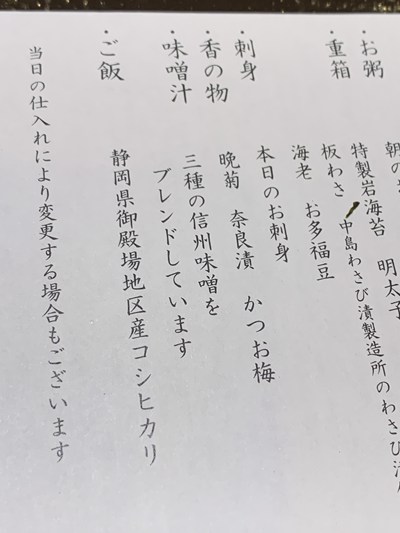 ・お粥
朝の
・重箱
特製岩海苔 明太子
中島わさび漬製造所のわさび漬
板わさ
海老 お多福豆
・刺身
本日のお刺身
・香の物
晩菊 奈良漬 かつお梅
・味噌汁
三種の信州味噌を
ブレンドしています
・ご飯
静岡県御殿場地区産コシヒカリ
当日の仕入れにより変更する場合もございます